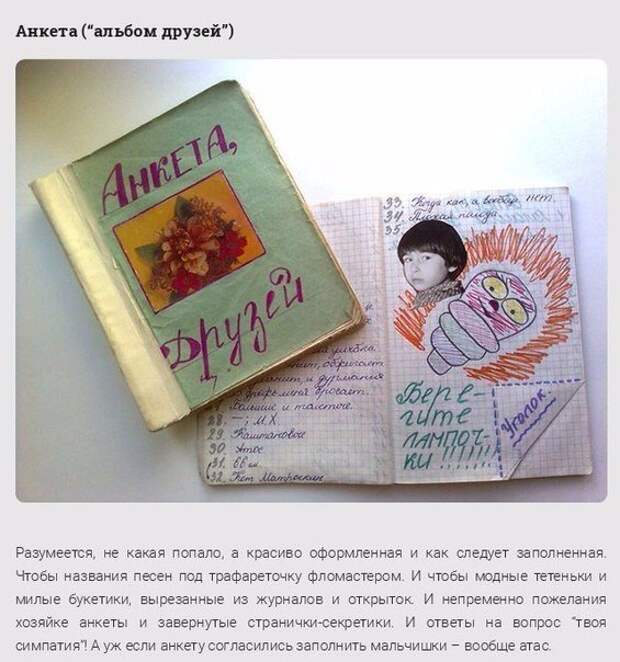 Анкета (“альбом друзей”)
АНКЕТА,
Друзей
33. Когда как, а вообще, нет.
34. Плохая погода.
35.
28. — ; М. Х.
29. Каштановое
30. Атос
31. 66 кг.
32. Кот Матроскин
Бере-
гите
лампоч-
ки!!!!!!!
Уголок
Разумеется, не какая попало, а красиво оформленная и как следует заполненная.
Чтобы названия песен под трафареточку фломастером. И чтобы модные тетеньки и
милые букетики, вырезанные из журналов и открыток. И непременно пожелания
хозяйке анкеты и завернутые странички-секретики. И ответы на вопрос “твоя
симпатия”! А уж если анкету согласились заполнить мальчишки – вообще атас.